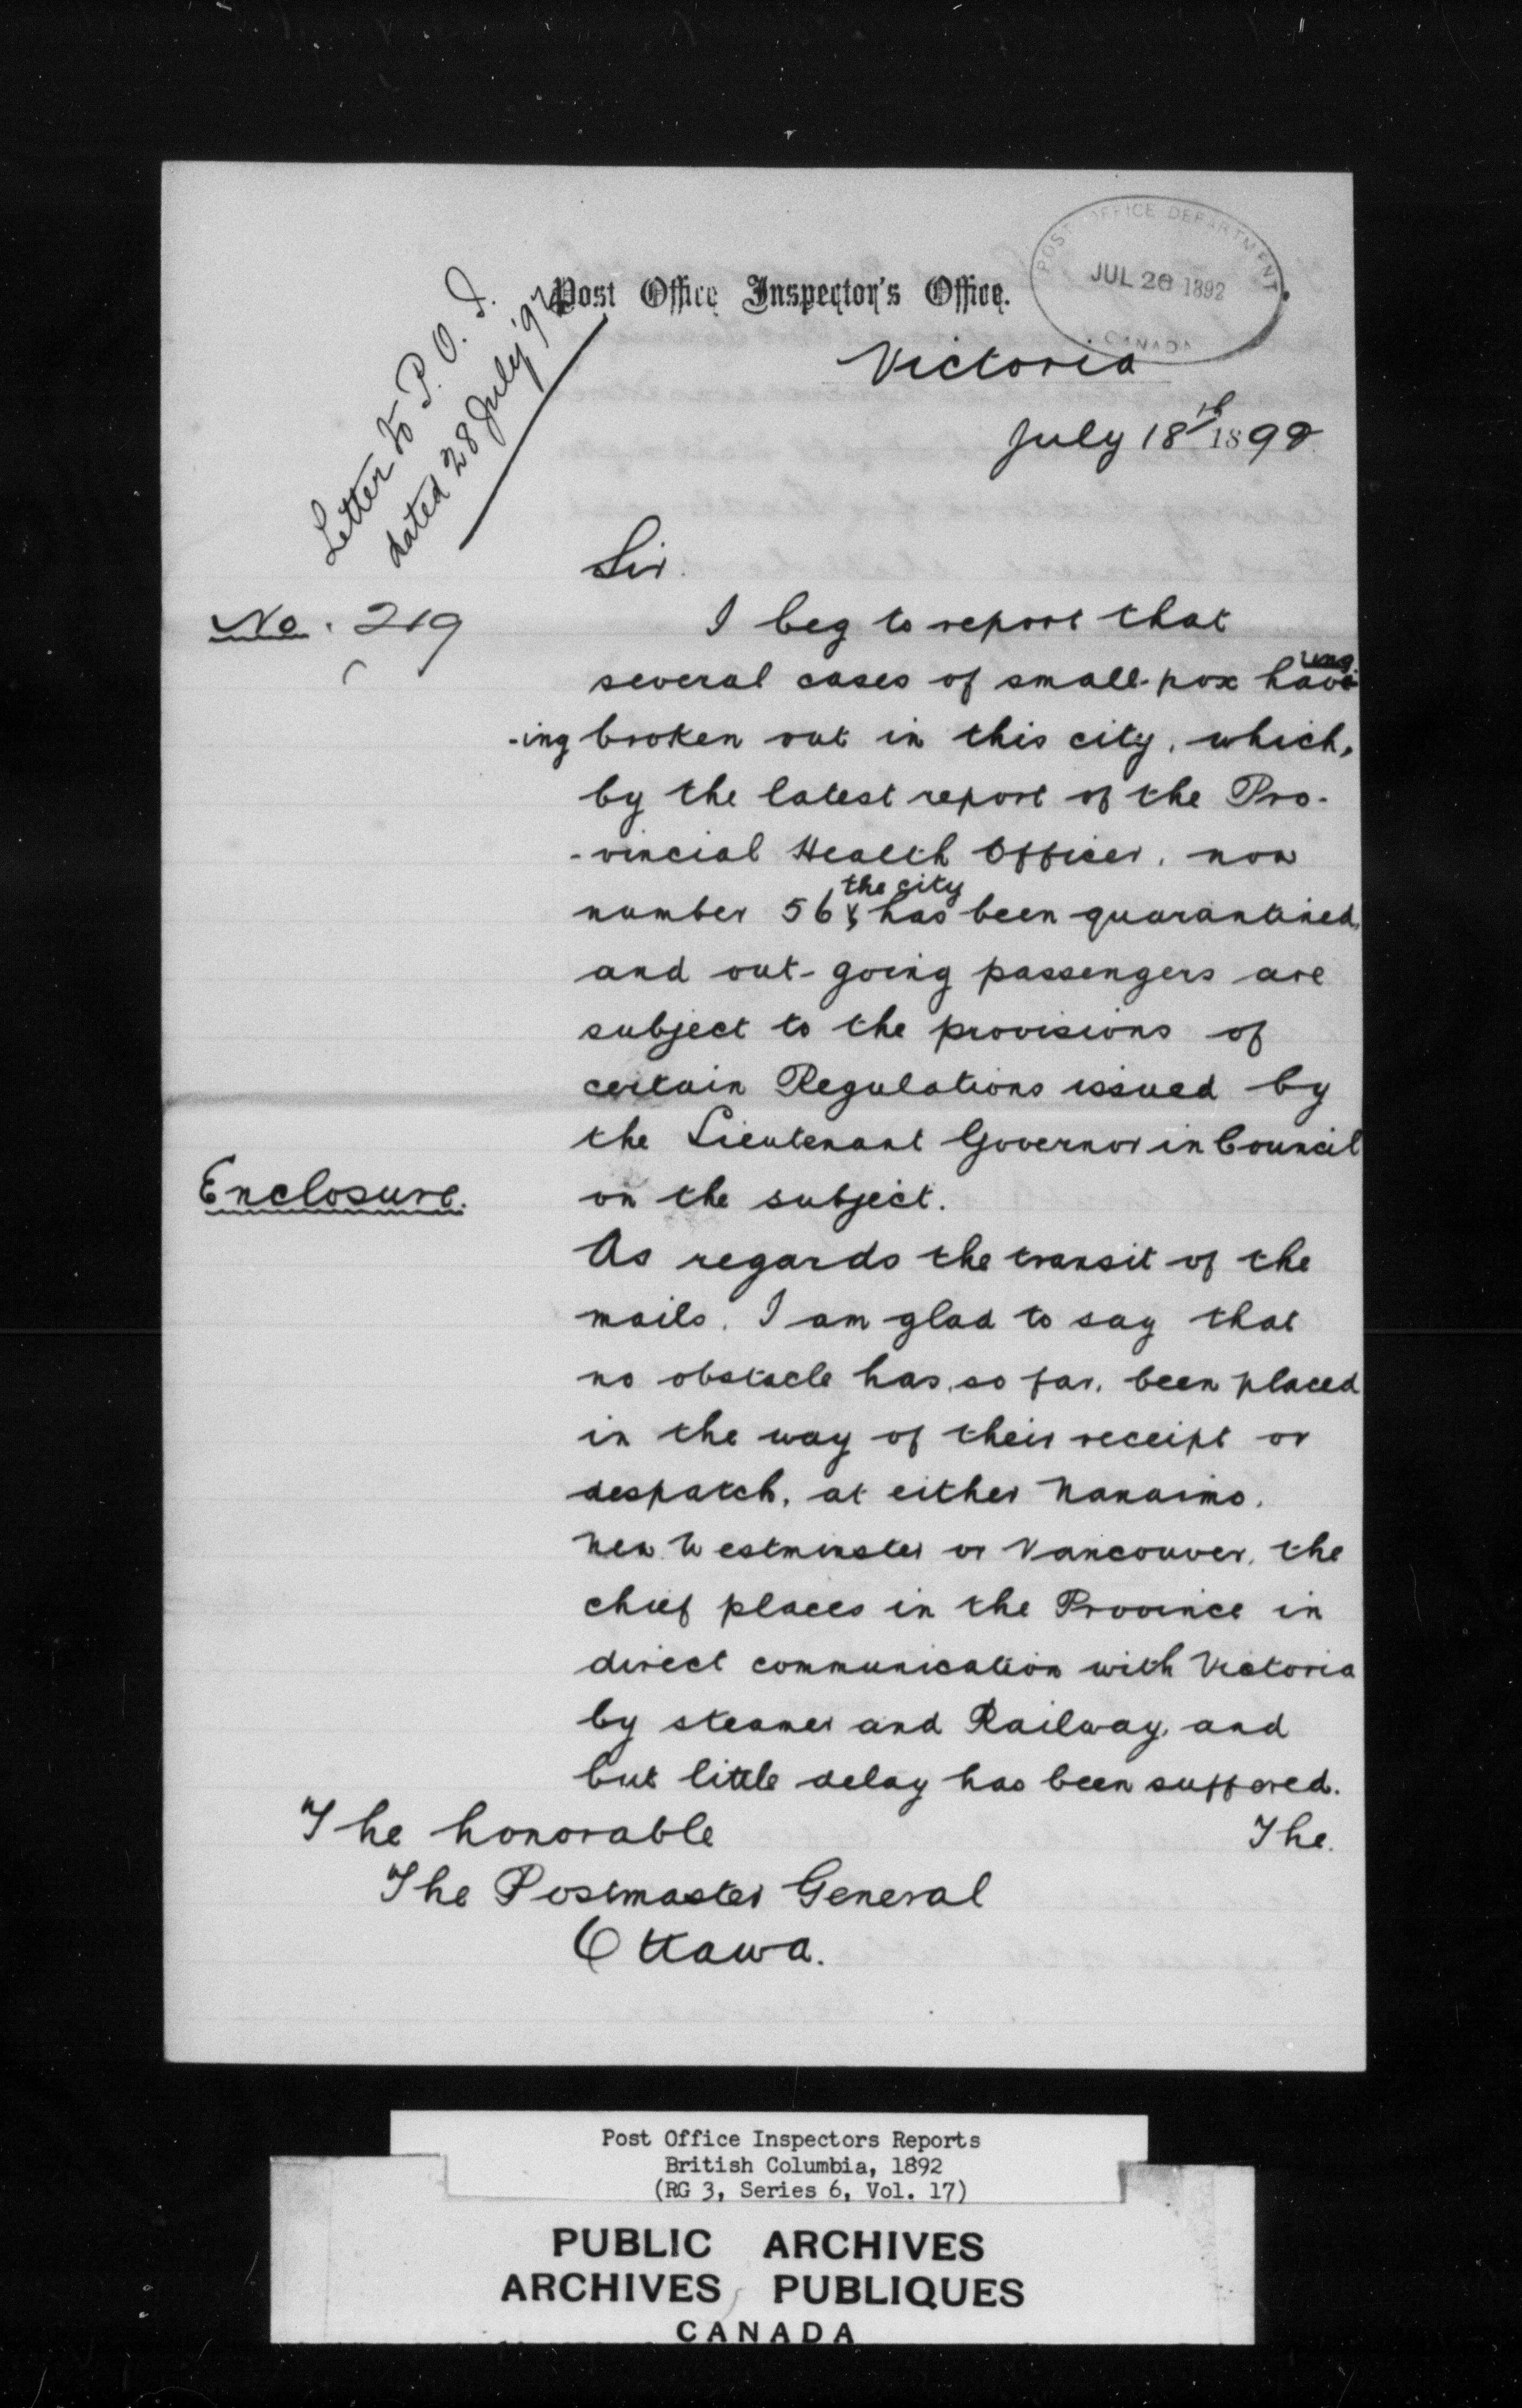 POST OFFICE DEPARTMENT
JUL 26 1892
CANADA
Post Office Inspector's Office.
Letter to P. O. I.
dated 28 July '92
Victoria
July 18th 1892
Sir.
No. 219
I beg to report that
several cases of small-pox hav
-ing broken out in this city, which,
by the latest report of the Pro-
-vincial Health Officer, now
the city
number 56, has been quarantined,
and out-going passengers are
subject to the provisions of
certain Regulations issued by
the Lieutenant Governor in Council
Enclosure.
on the subject.
As regards the transit of the
mails. I am glad to say that
no obstacle has, so far, been placed
in the way of their receipt or
despatch, at either Nanaimo,
New Westminster or Vancouver, the
chief places in the Province in
direct communication with Victoria
by steamer and Railway, and
but little delay has been suffered.
The honorable
The.
The Postmaster General
Ottawa.
Post Office Inspectors Reports
British Columbia, 1892
(RG 3, Series 6, Vol. 17)
PUBLIC ARCHIVES
ARCHIVES PUBLIQUES
CANADA